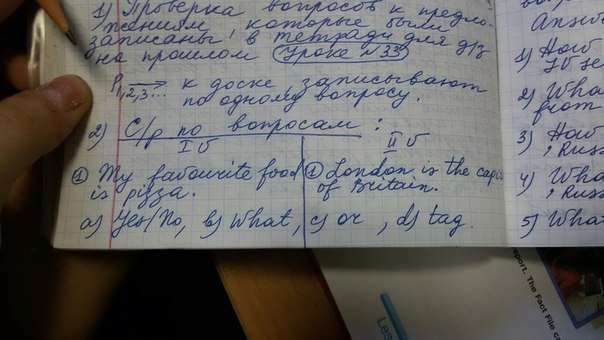 1) Проверка вопросов к предло-
жениям, которые были
записаны в тетради для д/з
на прошлом Уроке №33
P1,2,3... → к доске записывают
по одному вопросу.
2) С/р по вопросам :
I в II в
① My favourite food
is pizza.
① London is the capi
of Britain.
a) Yes/No, b) What, c) or , d) tag.
Answ
1) How
2) Wha
from
3) How
; Russ
4) Wha
; Russ
5) What
port. The Fact File c
Les